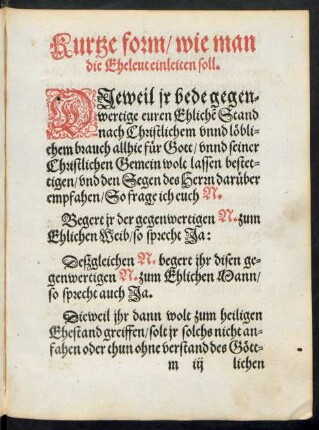 Kurtze form/ wie man
die Eheleut einleiten soll.
DIeweil jr bede gegen-
wertige euren Ehlichē Stand
nach Christlichem vnnd löbli-
chem brauch allhie für Gott/ vnnd seiner
Christlichen Gemein wolt lassen bestet-
tigen/ vnd den Segen des Herrn darüber
empfahen/ So frage ich euch N.
Begert jr der gegenwertigen N. zum
Ehlichen Weib/ so sprecht Ja:
Deßgleichen N. begert jhr disen ge-
genwertigen N. zum Ehlichen Mann/
so sprecht auch Ja.
Dieweil jhr dann wolt zum heiligen
Ehestand greiffen/ solt jr solchs nicht an-
fahen oder thun ohne verstand des Gött-
m iij lichen